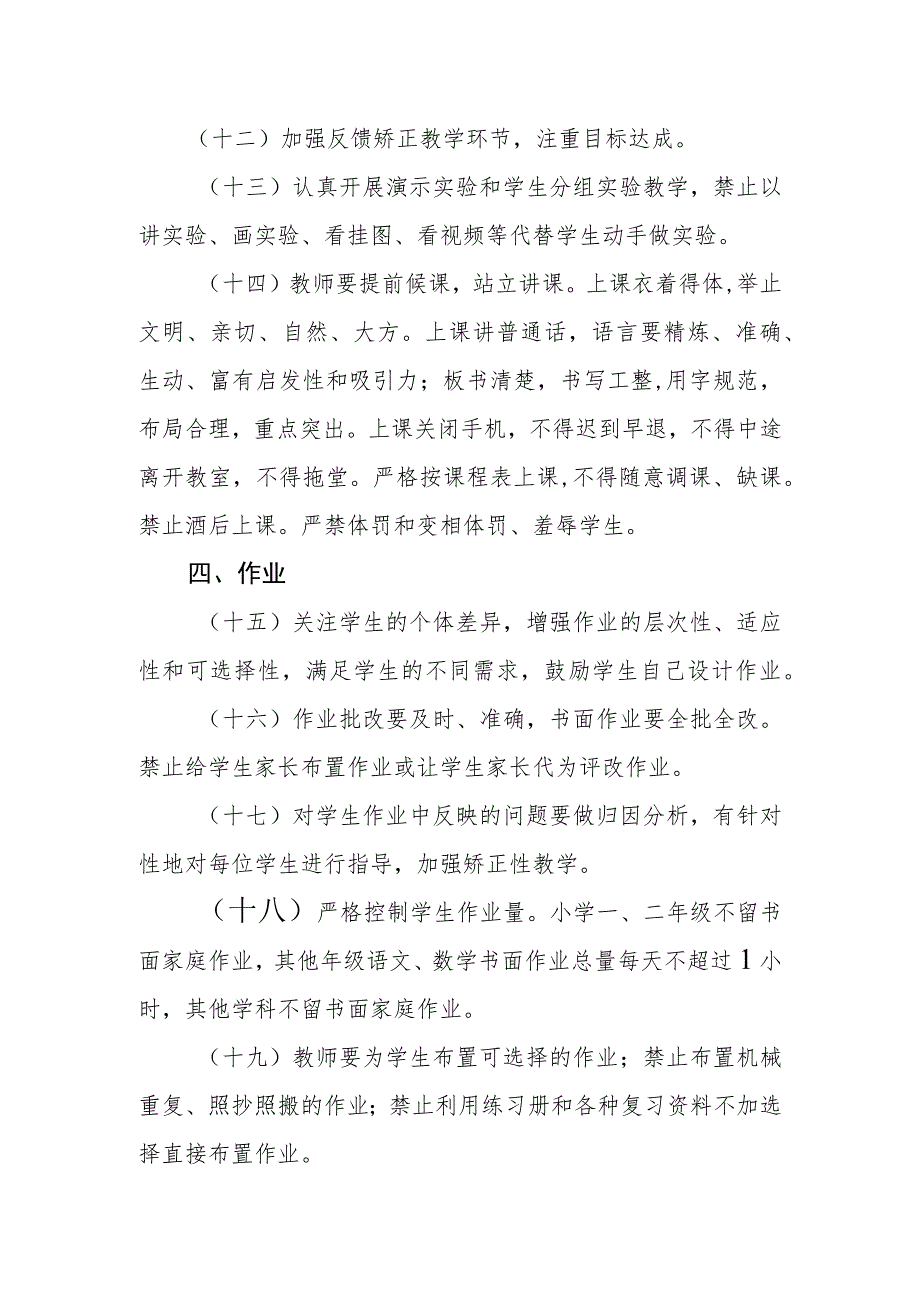 （十二）加强反馈矫正教学环节，注重目标达成。
（十三）认真开展演示实验和学生分组实验教学，禁止以
讲实验、画实验、看挂图、看视频等代替学生动手做实验。
（十四）教师要提前候课，站立讲课。上课衣着得体,举止
文明、亲切、自然、大方。上课讲普通话，语言要精炼、准确、
生动、富有启发性和吸引力；板书清楚，书写工整,用字规范，
布局合理，重点突出。上课关闭手机，不得迟到早退，不得中途
离开教室，不得拖堂。严格按课程表上课,不得随意调课、缺课。
禁止酒后上课。严禁体罚和变相体罚、羞辱学生。
四、作业
（十五）关注学生的个体差异，增强作业的层次性、适应
性和可选择性，满足学生的不同需求，鼓励学生自己设计作业。
（十六）作业批改要及时、准确，书面作业要全批全改。
禁止给学生家长布置作业或让学生家长代为评改作业。
（十七）对学生作业中反映的问题要做归因分析，有针对
性地对每位学生进行指导，加强矫正性教学。
（十八）严格控制学生作业量。小学一、二年级不留书
面家庭作业，其他年级语文、数学书面作业总量每天不超过1小
时，其他学科不留书面家庭作业。
（十九）教师要为学生布置可选择的作业；禁止布置机械
重复、照抄照搬的作业；禁止利用练习册和各种复习资料不加选
择直接布置作业。